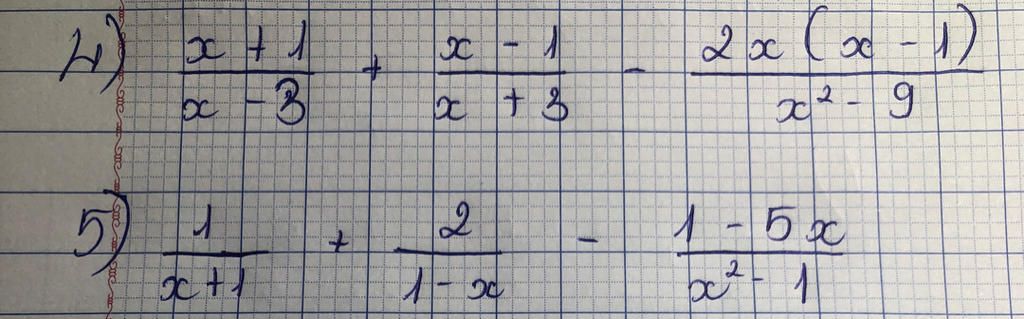 4) (x + 1)/(x - 3) + (x - 1)/(x + 3) - (2x(x - 1))/(x² - 9)
5) 1/(x+1) + 2/(1-x) - (1 - 5x)/(x² - 1)